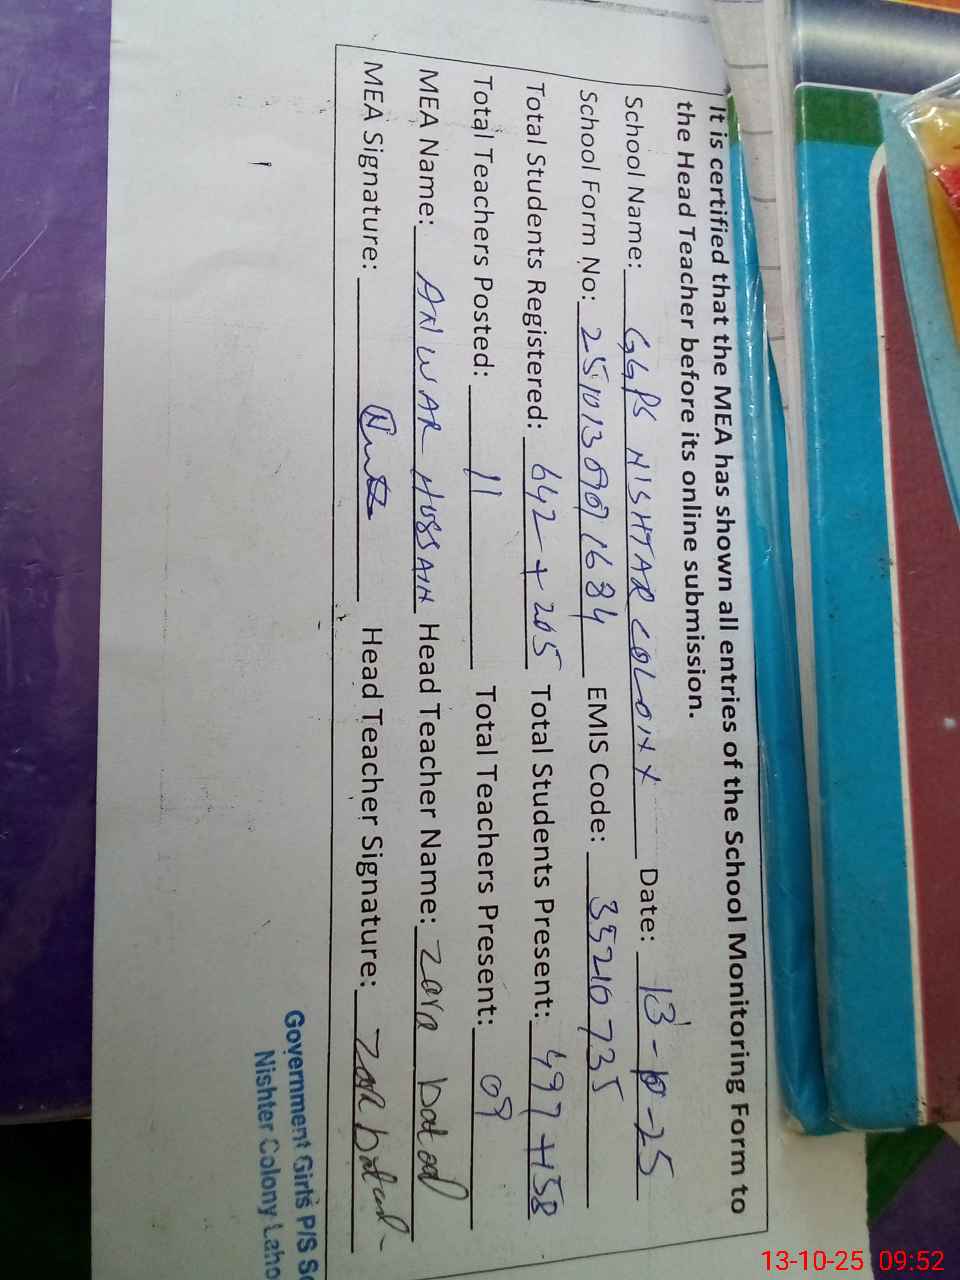 It is certified that the MEA has shown all entries of the School Monitoring Form to
the Head Teacher before its online submission.
School Name: GGPS NISHTAR COLONY Date: 13-10-25
School Form No: EMIS Code: 35210735
Total Students Registered: 642 + 205 Total Students Present: 497 + 158
Total Teachers Posted: 11 Total Teachers Present: 09
MEA Name: ANWAR HUSSAIN Head Teacher Name: Zara
MEA Signature: Head Teacher Signature:
Government Girls P/S
Nishter Colony
13-10-25 09:52